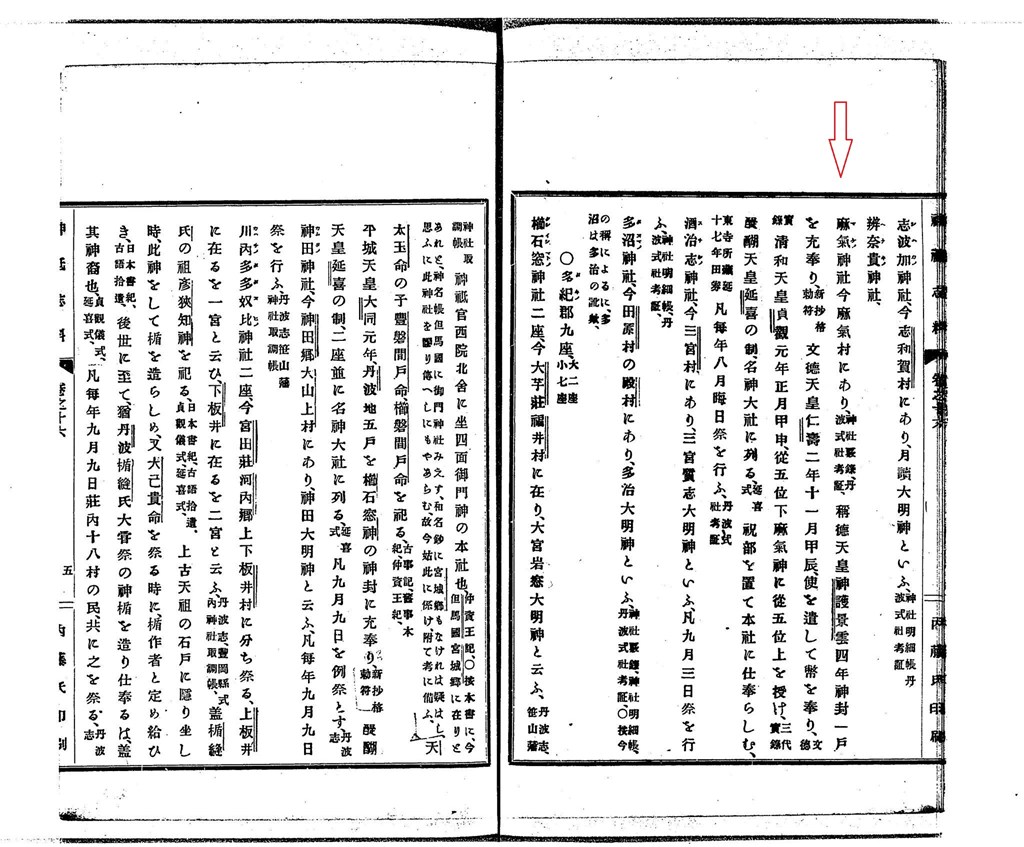 志波加神社、今志和賀村にあり、月讀大明神といふ、神社明細帳、丹波式社考証
辨奈貴神社。
麻氣神社今麻氣村にあり、神社覈錄、丹波式社考証、稱德天皇神護景雲四年神封一戸
を充奉り、新抄格勅符文德天皇仁壽二年十一月甲辰、使を遣して幣を奉り、文德
實錄清和天皇貞觀元年正月甲申、從五位下麻氣神に從五位上を授け、三代實錄
醍醐天皇延喜の制、名神大社に列る、延喜式祝部を置て本社に仕奉らしむ、
東寺所藏延喜十七年田券凡毎年八月晦日祭を行ふ、丹波式社考証
酒治志神社、今三宮村にあり、三宮賀志大明神といふ、凡九月三日祭を行
ふ、神社明細帳、丹波式社考証、
多沼神社、今田原村の殿村にあり、多治大明神といふ、神社覈錄、神社明細帳、丹波式社考証、〇按今
の稱によるに、多沼は多治の訛歟、
〇多紀郡九座、大二座小七座
櫛石窓神社二座、今大芋莊福井村に在り、大宮岩窓大明神と云ふ、丹波志、笹山藩
神社取調帳神祇官西院北舍に坐四面御門神の本社也、仲資王記、〇按本書に、今但馬國宮城鄕に在りと
あれと、神名帳但馬國に御門神社みえす、和名鈔に宮城鄕もなければ疑はし、
思ふに此神社を謬り傳へしにもやあらむ、故今姑此に係け附て考に備ふ、天
太玉命の子豐磐間戸命櫛磐間戸命を祀る、古事記、舊事本紀、仲資王紀、
平城天皇大同元年、丹波地五戸を櫛石窓神の神封に充奉り、新抄格勅符醍醐
天皇延喜の制、二座並に名神大社に列る、延喜式凡九月九日を例祭とす、丹波志
神田神社、今神田鄕大山上村にあり、神田大明神と云ふ、凡毎年九月九日
祭を行ふ、丹波志、笹山藩神社取調帳
川內多多奴比神社二座、今宮田莊河內鄕上下板井村に分ち祭る、上板井
に在るを一宮と云ひ、下板井に在るを二宮と云ふ、丹波志、豐岡縣式內神社取調帳、蓋楯縫
氏の祖彦狹知神を祀る、日本書紀、古語拾遺、貞觀儀式、延喜式、上古天祖の石戸に隱り坐し
時、此神をして楯を造らしめ、又大己貴命を祭る時に、楯作者と定め給ひ
き、日本書紀、古語拾遺、後世に至て、猶丹波楯縫氏大甞祭の神楯を造り仕奉るは、蓋
其神裔也、貞觀儀式、延喜式、凡毎年九月九日莊內十八村の民、共に之を祭る、丹波志
神祇志料
卷之十六
五
內藤氏印刷